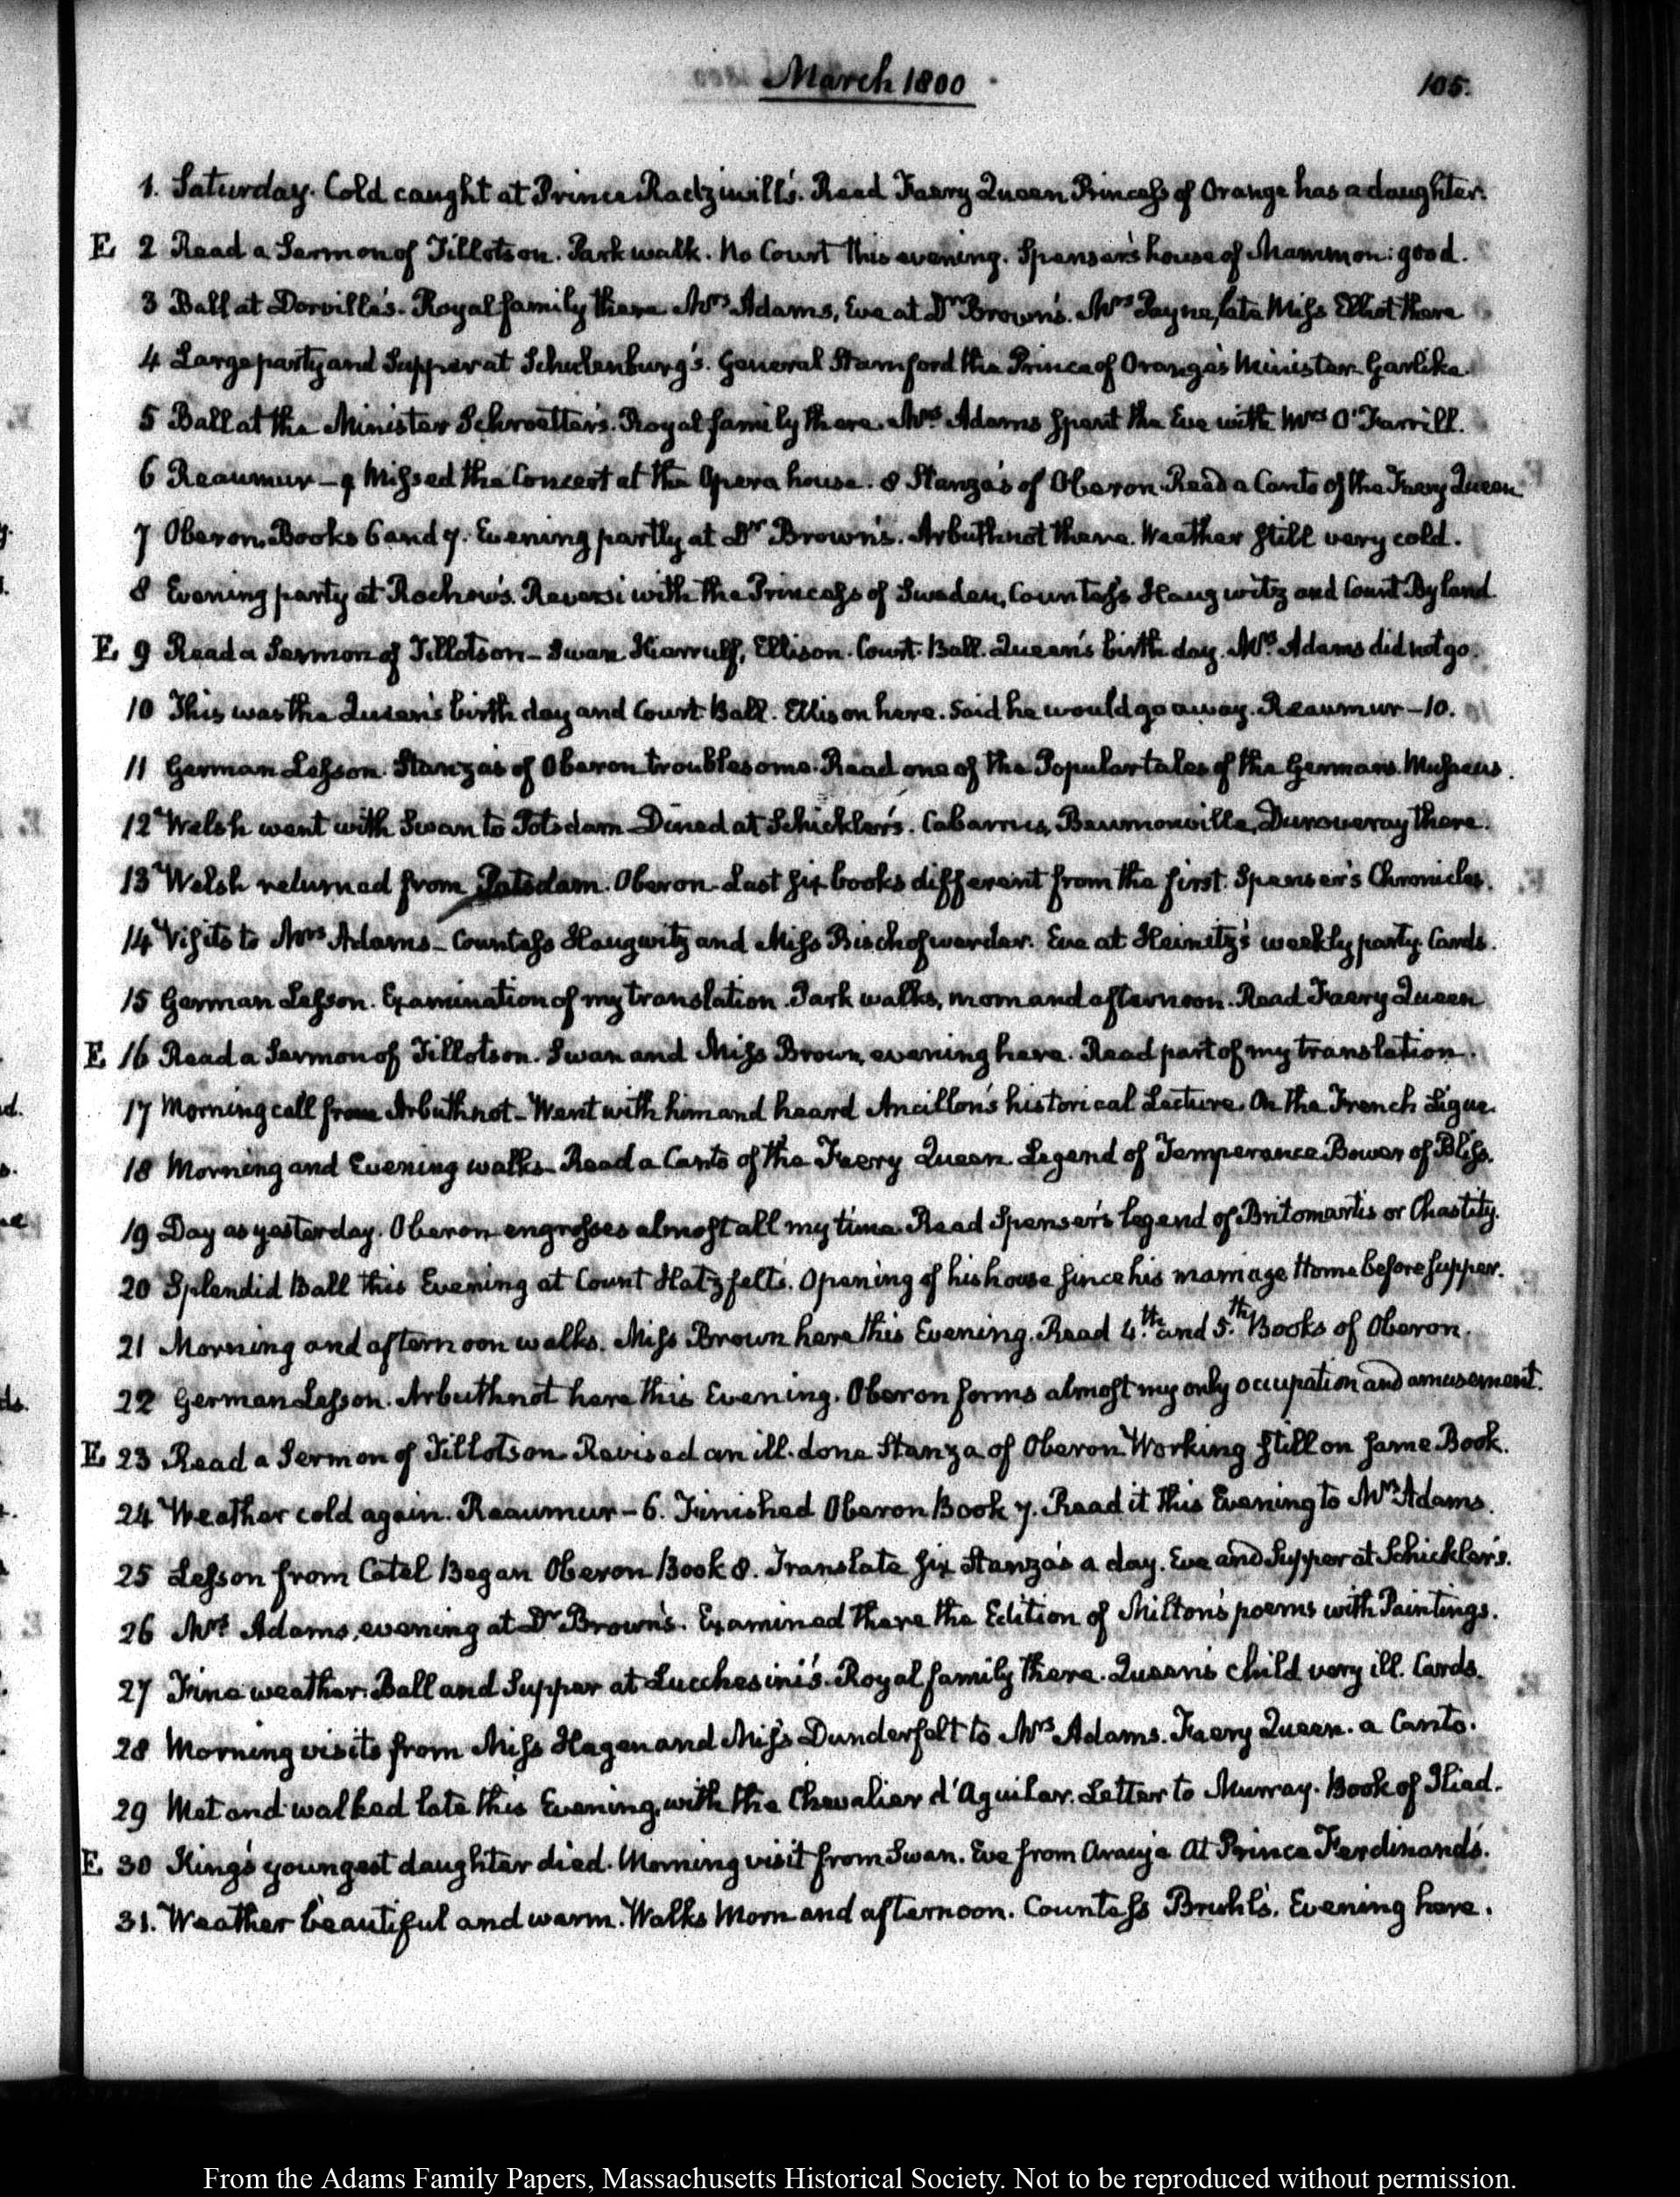 March 1800
105.
1. Saturday. Cold caught at Prince Radziwill's. Read Faery Queen Princess of Orange has a daughter.
E 2 Read a Sermon of Tillotson. Park walk. No Court this evening. Spenser's house of Mammon: good.
3 Ball at Dorville's. Royal family there Mrs Adams, Eve at Dr Brown's. Mrs Payne, late Miss Elliot there
4 Large party and Supper at Schulenburg's. General Stamford the Prince of Orange's Minister. Garlike.
5 Ball at the Minister Schroetter's. Royal family there. Mrs Adams spent the Eve with Mrs O'Farrill.
6 Reaumur – 9 Missed the Concert at the Opera house. 8 Stanza's of Oberon Read a Canto of the Faery Queen
7 Oberon. Books 6 and 7. Evening partly at Dr Brown's. Arbuthnot there. Weather still very cold.
8 Evening party at Rochow's. Reversi with the Princess of Sweden, Countess Haugwitz and Count Byland.
E 9 Read a Sermon of Tillotson – Swan Ellison. Court. Ball. Queen's birth day. Mrs Adams did not go.
10 This was the Queen's birth day and Court Ball. Ellison here. Said he would go away. Reaumur – 10.
11 German Lesson. Stanza's of Oberon troublesome. Read one of the Popular tales of the Germans. Musaeus.
12 Welsh went with Swan to Potsdam Dined at Schickler's. Cabarrus, Beurnonville, Duroveray there.
13 Welsh returned from Potsdam. Oberon – Last six books different from the first. Spenser's Chronicles.
14 Visits to Mrs Adams – Countess Haugwitz and Miss Bischofwerder. Eve at Heinitz's weekly party. Cards.
15 German Lesson. Examination of my translation. Park walks, morn and afternoon. Read Faery Queen
E 16 Read a Sermon of Tillotson. Swan and Miss Brown, evening here. Read part of my translation.
17 Morning call from Arbuthnot – Went with him and heard Ancillon's historical Lecture. On the French Ligue.
18 Morning and Evening walks – Read a Canto of the Faery Queen. Legend of Temperance Bower of Bliss.
19 Day as yesterday. Oberon engrosses almost all my time. Read Spenser's legend of Britomartis or Chastity.
20 Splendid Ball this Evening at Count Hatzfelt's. Opening of his house since his marriage Home before supper.
21 Morning and afternoon walks. Miss Brown here this Evening. Read 4.th and 5.th Books of Oberon.
22 German Lesson. Arbuthnot here this Evening. Oberon forms almost my only occupation and amusement.
E 23 Read a Sermon of Tillotson Revised an ill-done Stanza of Oberon Working still on same Book.
24 Weather cold again. Reaumur – 6. Finished Oberon Book 7. Read it this Evening to Mrs Adams.
25 Lesson from Catel Began Oberon Book 8. Translate six Stanza's a day. Eve and Supper at Schickler's.
26 Mrs Adams, evening at Dr Brown's. Examined there the Edition of Milton's poems with Paintings.
27 Fine weather. Ball and Supper at Lucchesini's. Royal family there. Queen's child very ill. Cards.
28 Morning visits from Miss Hagen and Miss Dunderfelt to Mrs Adams. Faery Queen. a Canto.
29 Met and walked late this Evening, with the Chevalier d'Aguilar. Letter to Murray. Book of Iliad.
E 30 King's youngest daughter died. Morning visit from Swan. Eve from Araujo At Prince Ferdinand's.
31. Weather beautiful and warm. Walks Morn and afternoon. Countess Bruhl's. Evening here.
From the Adams Family Papers, Massachusetts Historical Society. Not to be reproduced without permission.